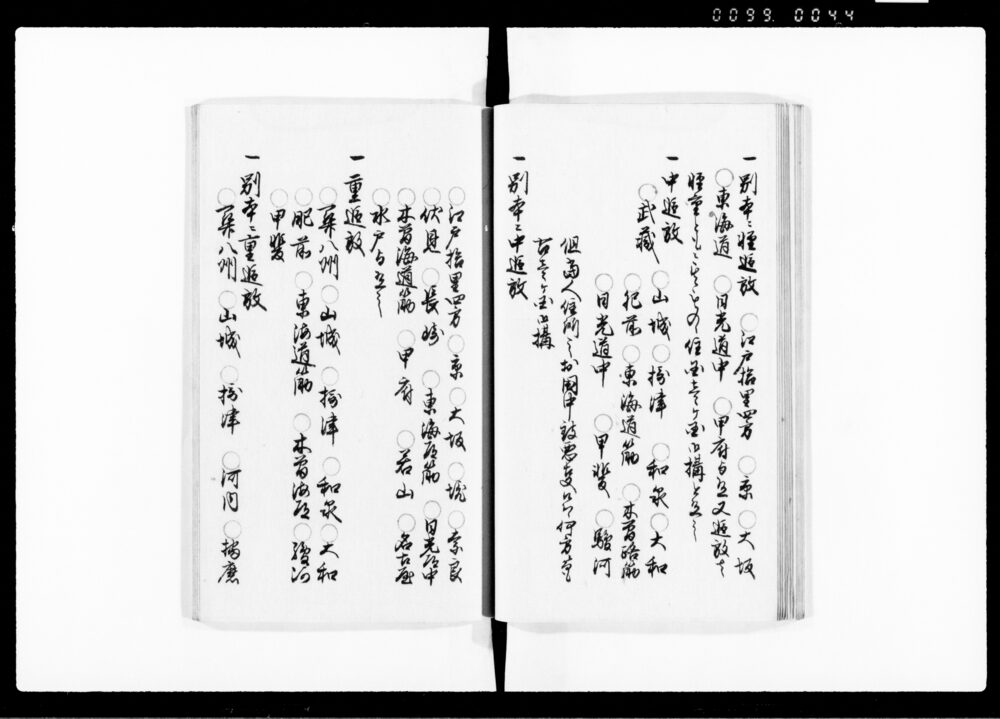 0099.0044
一別本ニ軽追放 ○江戸拾里四方 ○京 ○大坂
○東海道 ○日光道中 ○甲府与有之又追放之
軽重 住国 御構
一中追放
○武蔵 ○山城 ○摂津 ○和泉 ○大和
○肥前 ○東海道筋 ○木曽路筋
○日光道中 ○甲斐 ○駿河
但当人住所之於国中致悪事候ハヽ何方ニ而も
右壱ヶ国御構
一別本ニ中追放
○江戸拾里四方 ○京 ○大坂 ○堺 ○奈良
○伏見 ○長崎 ○東海道筋 ○日光道中
○木曽海道筋 ○甲府 ○若山 ○名古屋
○水戸与有之
一重追放
○関八州 ○山城 ○摂津 ○和泉 ○大和
○肥前 ○東海道筋 ○木曽海道 ○駿河
○甲斐
一別本ニ重追放
○関八州 ○山城 ○摂津 ○河内 ○播磨